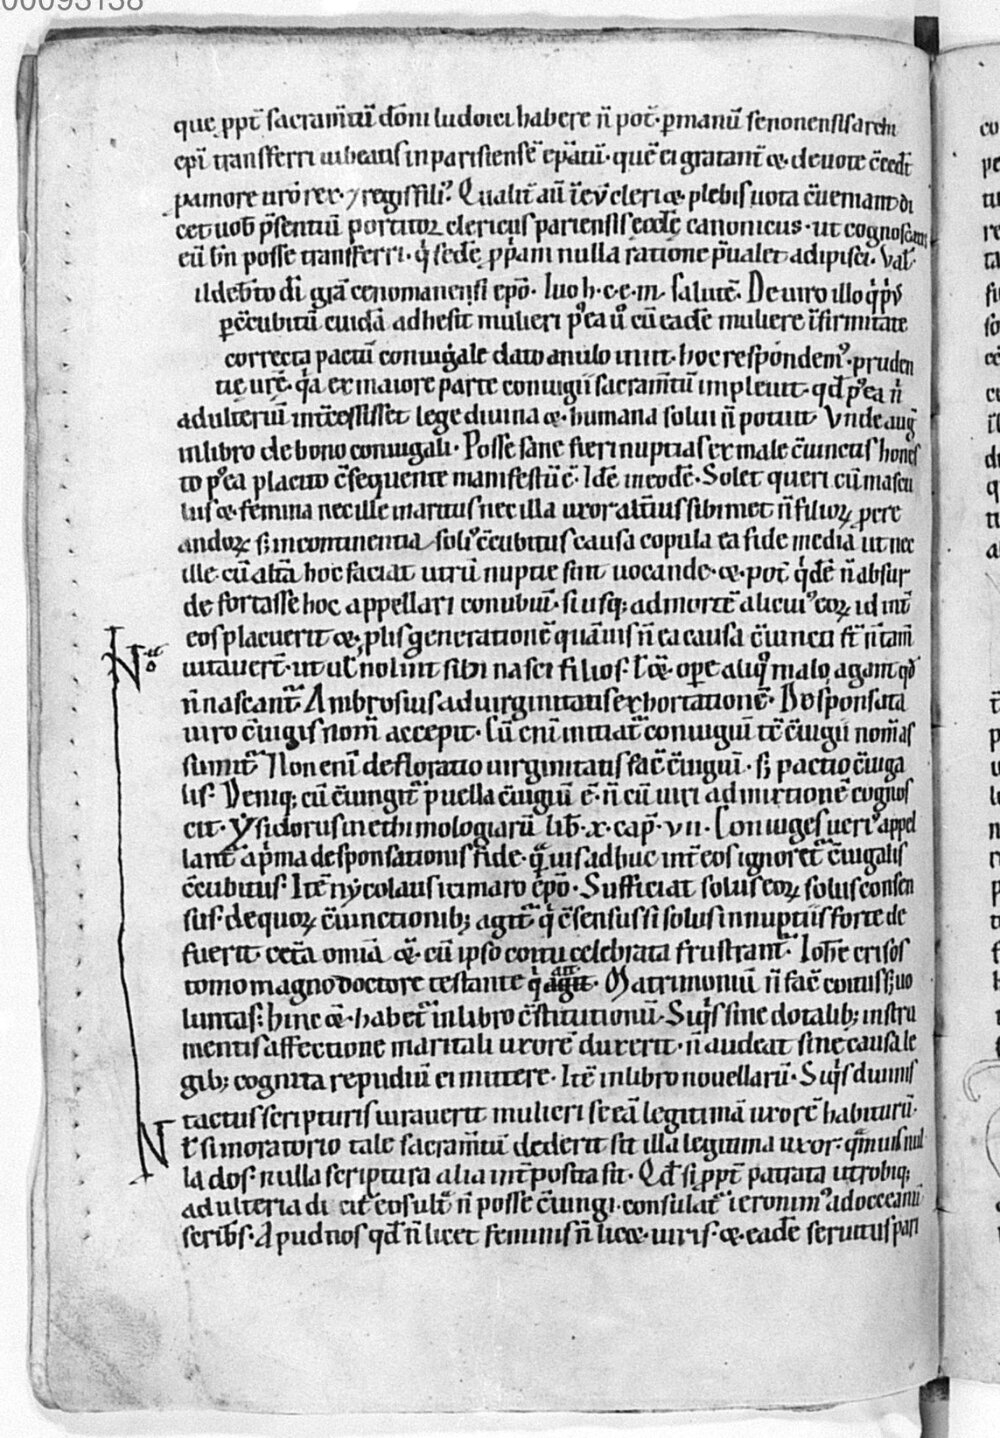 00093138
que ꝓpt̄ sacram̄tū dōni ludoici habere n̄ pot̄. p manū senonensis archi
epi transferri iubeatis in parisiensē ep̄atū. quē ei gratant̄ ⁊ deuote c̄cedit
p amore ur̄o rex ⁊ regis fili⁹. Qualit̄ aū ī eū cleri ⁊ plebis uota c̄ueniant di
cet uob̄ p̄sentiū portitor clericus pariensis eccl̄e canonicus. ut cognoscam
eū bn̄ posse transferri. q̇ sedē ꝓp̄am nulla ratione p̄ualet adipisci. Val̄.
ildeb̄to dī gr̄a cenomanensi ep̄o. Iuo h. c. e. m. salutē. De uiro illo q̇ p̄us
p c̄cubitū cuidā adhesit mulieri p⁹ea u̇ cū eadē muliere īfirmitate
correcta pactū coniugale dato anulo iniit. hoc respondem⁹. pruden
tie ur̄e. q̇a ex maiore parte coniugii sacram̄tū impleuit. qd̄ p⁹ea n̄
adulteriū int̄cessisset lege diuina ⁊ humana solui n̄ potuit Vnde auḡ
in libro de bono coniugali. Posse sane fieri nuptias ex male c̄iunctis hones
to p⁹ea placito c̄sequente manifestū ē. Idē in eodē. Solet queri cū mascu
lus ⁊ femina nec ille maritus nec illa uxor alt̄ius sibimet n̄ filioꝝ pcre
andoꝝ s; incontinentia solī c̄cubitus causa copulat̄ ea fide media ut nec
ille cū alt̄a hoc faciat utrū nuptie sint uocande. ⁊ pot̄ q̇dē n̄ absur
de fortasse hoc appellari conubiū. si usq; ad mortē alicui⁹ eoꝝ id int̄
eos placuerit ⁊ ꝓlis generationē quāuis n̄ ea causa c̄iuncti st̄ n̄ tam̄
uitauer̄t. ut ul̄ nolint sibi nasci filios. l̄ ⁊ ope aliq̇ malo agant qd̄
n̄ nascant̄. Ambrosius ad uirginitatis exhortationē. Desponsata
uiro c̄iugis nom̄ accepit. Cū enī initiat̄ coniugiū tc̄ c̄iugii nom̄ as
sumit̄. Non enī defloratio uirginitatis fac̄ c̄iugiū. s; pactio c̄iuga
lis. Deniq; cū c̄iungit̄ puella c̄iugiū ē. n̄ cū uiri admixtionē cognos
cit. Ysidorus in ethimologiarū lib̄. x. cap̄. vii. Coniuges ueri⁹ appel
lant̄ a p̄ma desponsationis fide. q̄uis adhuc int̄ eos ignoret̄ c̄iugalis
c̄cubitus. Itē nycolaus icimaro ep̄o. Sufficiat solus eoꝝ solus consen
sus. de quoꝝ c̄iunctionib; agit̄. q̇ c̄sensus si solus in nuptiis forte de
fuerit. cet̄a omīa ⁊ cū ipso coitu celebrata frustrant̄. Ioh̄e crisos
tomo magno doctore testante q̇ ait. Matrimoniū n̄ fac̄ coitus s; uo
luntas. hinc ⁊ habet̄ in libro c̄stitutionū. Siq̇s sine dotalib; instru
mentis affectione maritali uxorē duxerit. n̄ audeat sine causa le
gib; cognita repudiū ei mittere. Itē in libro nouellarū. Siq̇s diuinis
tactus scripturis iurauerit mulieri se eā legitimā uxorē habiturū.
l̄ si in oratorio tale sacram̄tū dederit sit illa legitima uxor. q̄muis nul
la dos. nulla scriptura alia int̄posita sit. Qd̄ si ꝓpt̄ patrata utrobiq;
adulteria di cit̄ c̄sult̄ n̄ posse c̄iungi. consulat̄ ieronim⁹ ad occeanū
scribēs. Apud nos qd̄ n̄ licet feminis n̄ licet uiris. ⁊ eadē seruitus pari